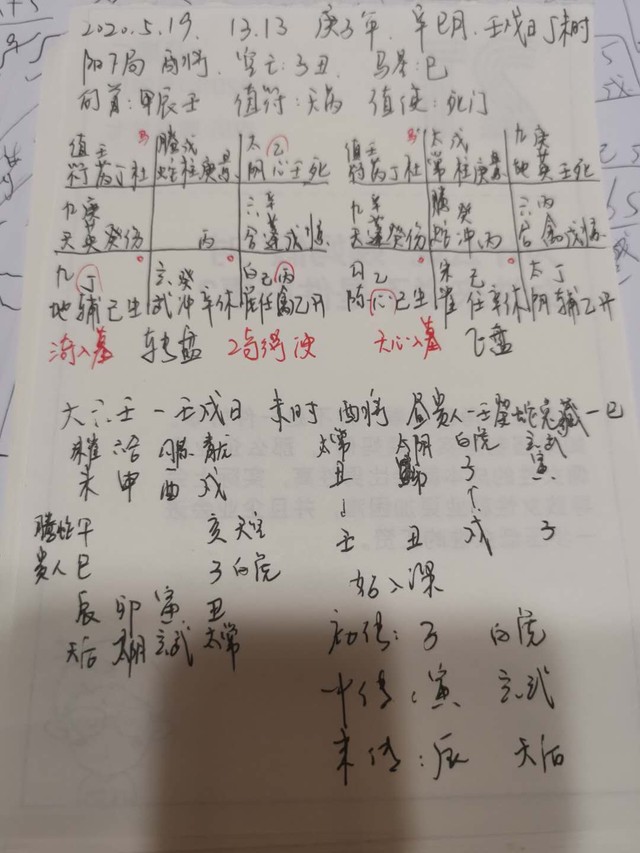 2020.5.19. 13.13 庚子年 辛巳月 壬戌日 丁未时
阳7局 酉将 空亡:子丑 马星:巳
旬首:甲辰壬 值符:天芮 值使:死门
值壬 马 螣戊 太乙 值壬 马 太戊 九庚
符芮丁杜 蛇柱庚景 阴心壬死 符芮丁杜 常柱庚景 地英壬死
九庚 六辛 九辛 螣癸 六丙
天英癸伤 丙 合蓬戊惊 天蓬癸伤 蛇冲丙 合禽戊惊
九丁 玄癸 白己丙 勾乙 朱己 太丁
地辅己生 武冲辛休 虎任禽乙开 陈心己生 雀任辛休 阴辅乙开
奇入墓 转盘 天心入墓 飞盘
大六壬-壬戌日 未时 酉将 昼贵人-壬癸蛇兔藏-巳
朱雀 六合 勾陈 青龙 太常 太阴 白虎 玄武
未 申 酉 戌 丑 卯 子 寅
螣蛇午 亥天空 壬 丑 戌 子
贵人巳 子白虎
辰 卯 寅 丑 初传:子 白虎
天后 太阴 玄武 太常
中传:寅 玄武
末传:辰 天后